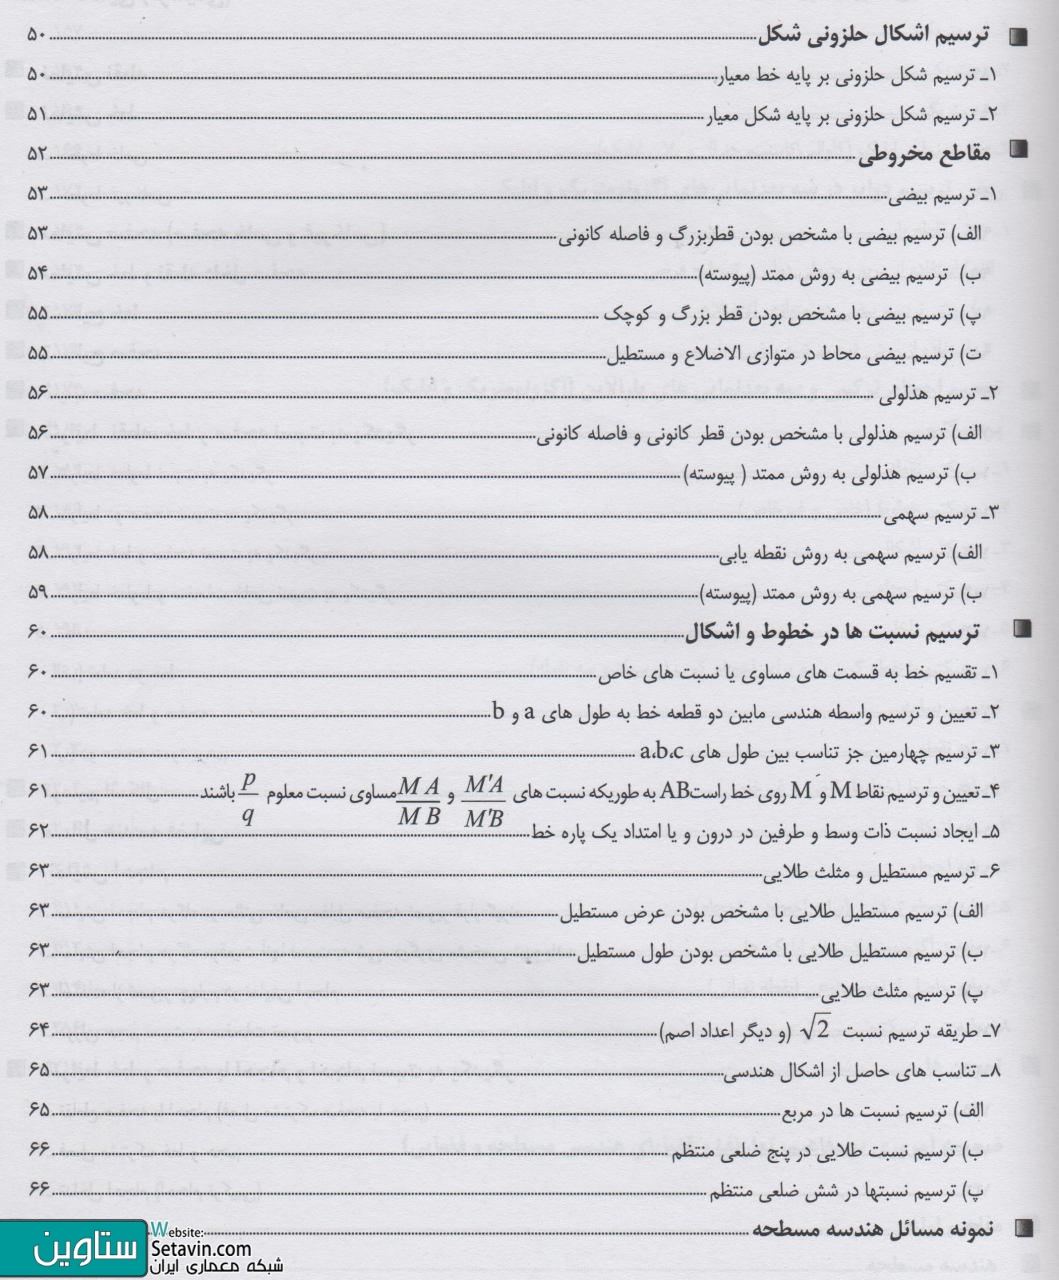 ترسیم اشکال حلزونی شکل ........ ۵۰
۱ـ ترسیم شکل حلزونی بر پایه خط معیار ........ ۵۰
۲ـ ترسیم شکل حلزونی بر پایه شکل معیار ........ ۵۱
مقاطع مخروطی ........ ۵۲
۱ـ ترسیم بیضی ........ ۵۳
الف) ترسیم بیضی با مشخص بودن قطربزرگ و فاصله کانونی ........ ۵۳
ب) ترسیم بیضی به روش ممتد (پیوسته) ........ ۵۴
پ) ترسیم بیضی با مشخص بودن قطر بزرگ و کوچک ........ ۵۵
ت) ترسیم بیضی محاط در متوازی الاضلاع و مستطیل ........ ۵۵
۲ـ ترسیم هذلولی ........ ۵۶
الف) ترسیم هذلولی با مشخص بودن قطر کانونی و فاصله کانونی ........ ۵۶
ب) ترسیم هذلولی به روش ممتد ( پیوسته) ........ ۵۷
۳ـ ترسیم سهمی ........ ۵۸
الف) ترسیم سهمی به روش نقطه یابی ........ ۵۸
ب) ترسیم سهمی به روش ممتد (پیوسته) ........ ۵۹
ترسیم نسبت ها در خطوط و اشکال ........ ۶۰
۱ـ تقسیم خط به قسمت های مساوی یا نسبت های خاص ........ ۶۰
۲ـ تعیین و ترسیم واسطه هندسی مابین دو قطعه خط به طول های a و b ........ ۶۰
۳ـ ترسیم چهارمین جز تناسب بین طول های a،b،c ........ ۶۱
۴ـ تعیین و ترسیم نقاط M و M' روی خط راست AB به طوریکه نسبت های M'A/M'B و MA/MB مساوی نسبت معلوم p/q باشند ........ ۶۱
۵ـ ایجاد نسبت ذات وسط و طرفین در درون و یا امتداد یک پاره خط ........ ۶۲
۶ـ ترسیم مستطیل و مثلث طلایی ........ ۶۳
الف) ترسیم مستطیل طلایی با مشخص بودن عرض مستطیل ........ ۶۳
ب) ترسیم مستطیل طلایی با مشخص بودن طول مستطیل ........ ۶۳
پ) ترسیم مثلث طلایی ........ ۶۳
۷ـ طریقه ترسیم نسبت √2 (و دیگر اعداد اصم) ........ ۶۴
۸ـ تناسب های حاصل از اشکال هندسی ........ ۶۵
الف) ترسیم نسبت ها در مربع ........ ۶۵
ب) ترسیم نسبت طلایی در پنج ضلعی منتظم ........ ۶۶
پ) ترسیم نسبتها در شش ضلعی منتظم ........ ۶۶
نمونه مسائل هندسه مسطحه ........
ستاوین
Website:
Setavin.com
شبکه معماری ایران